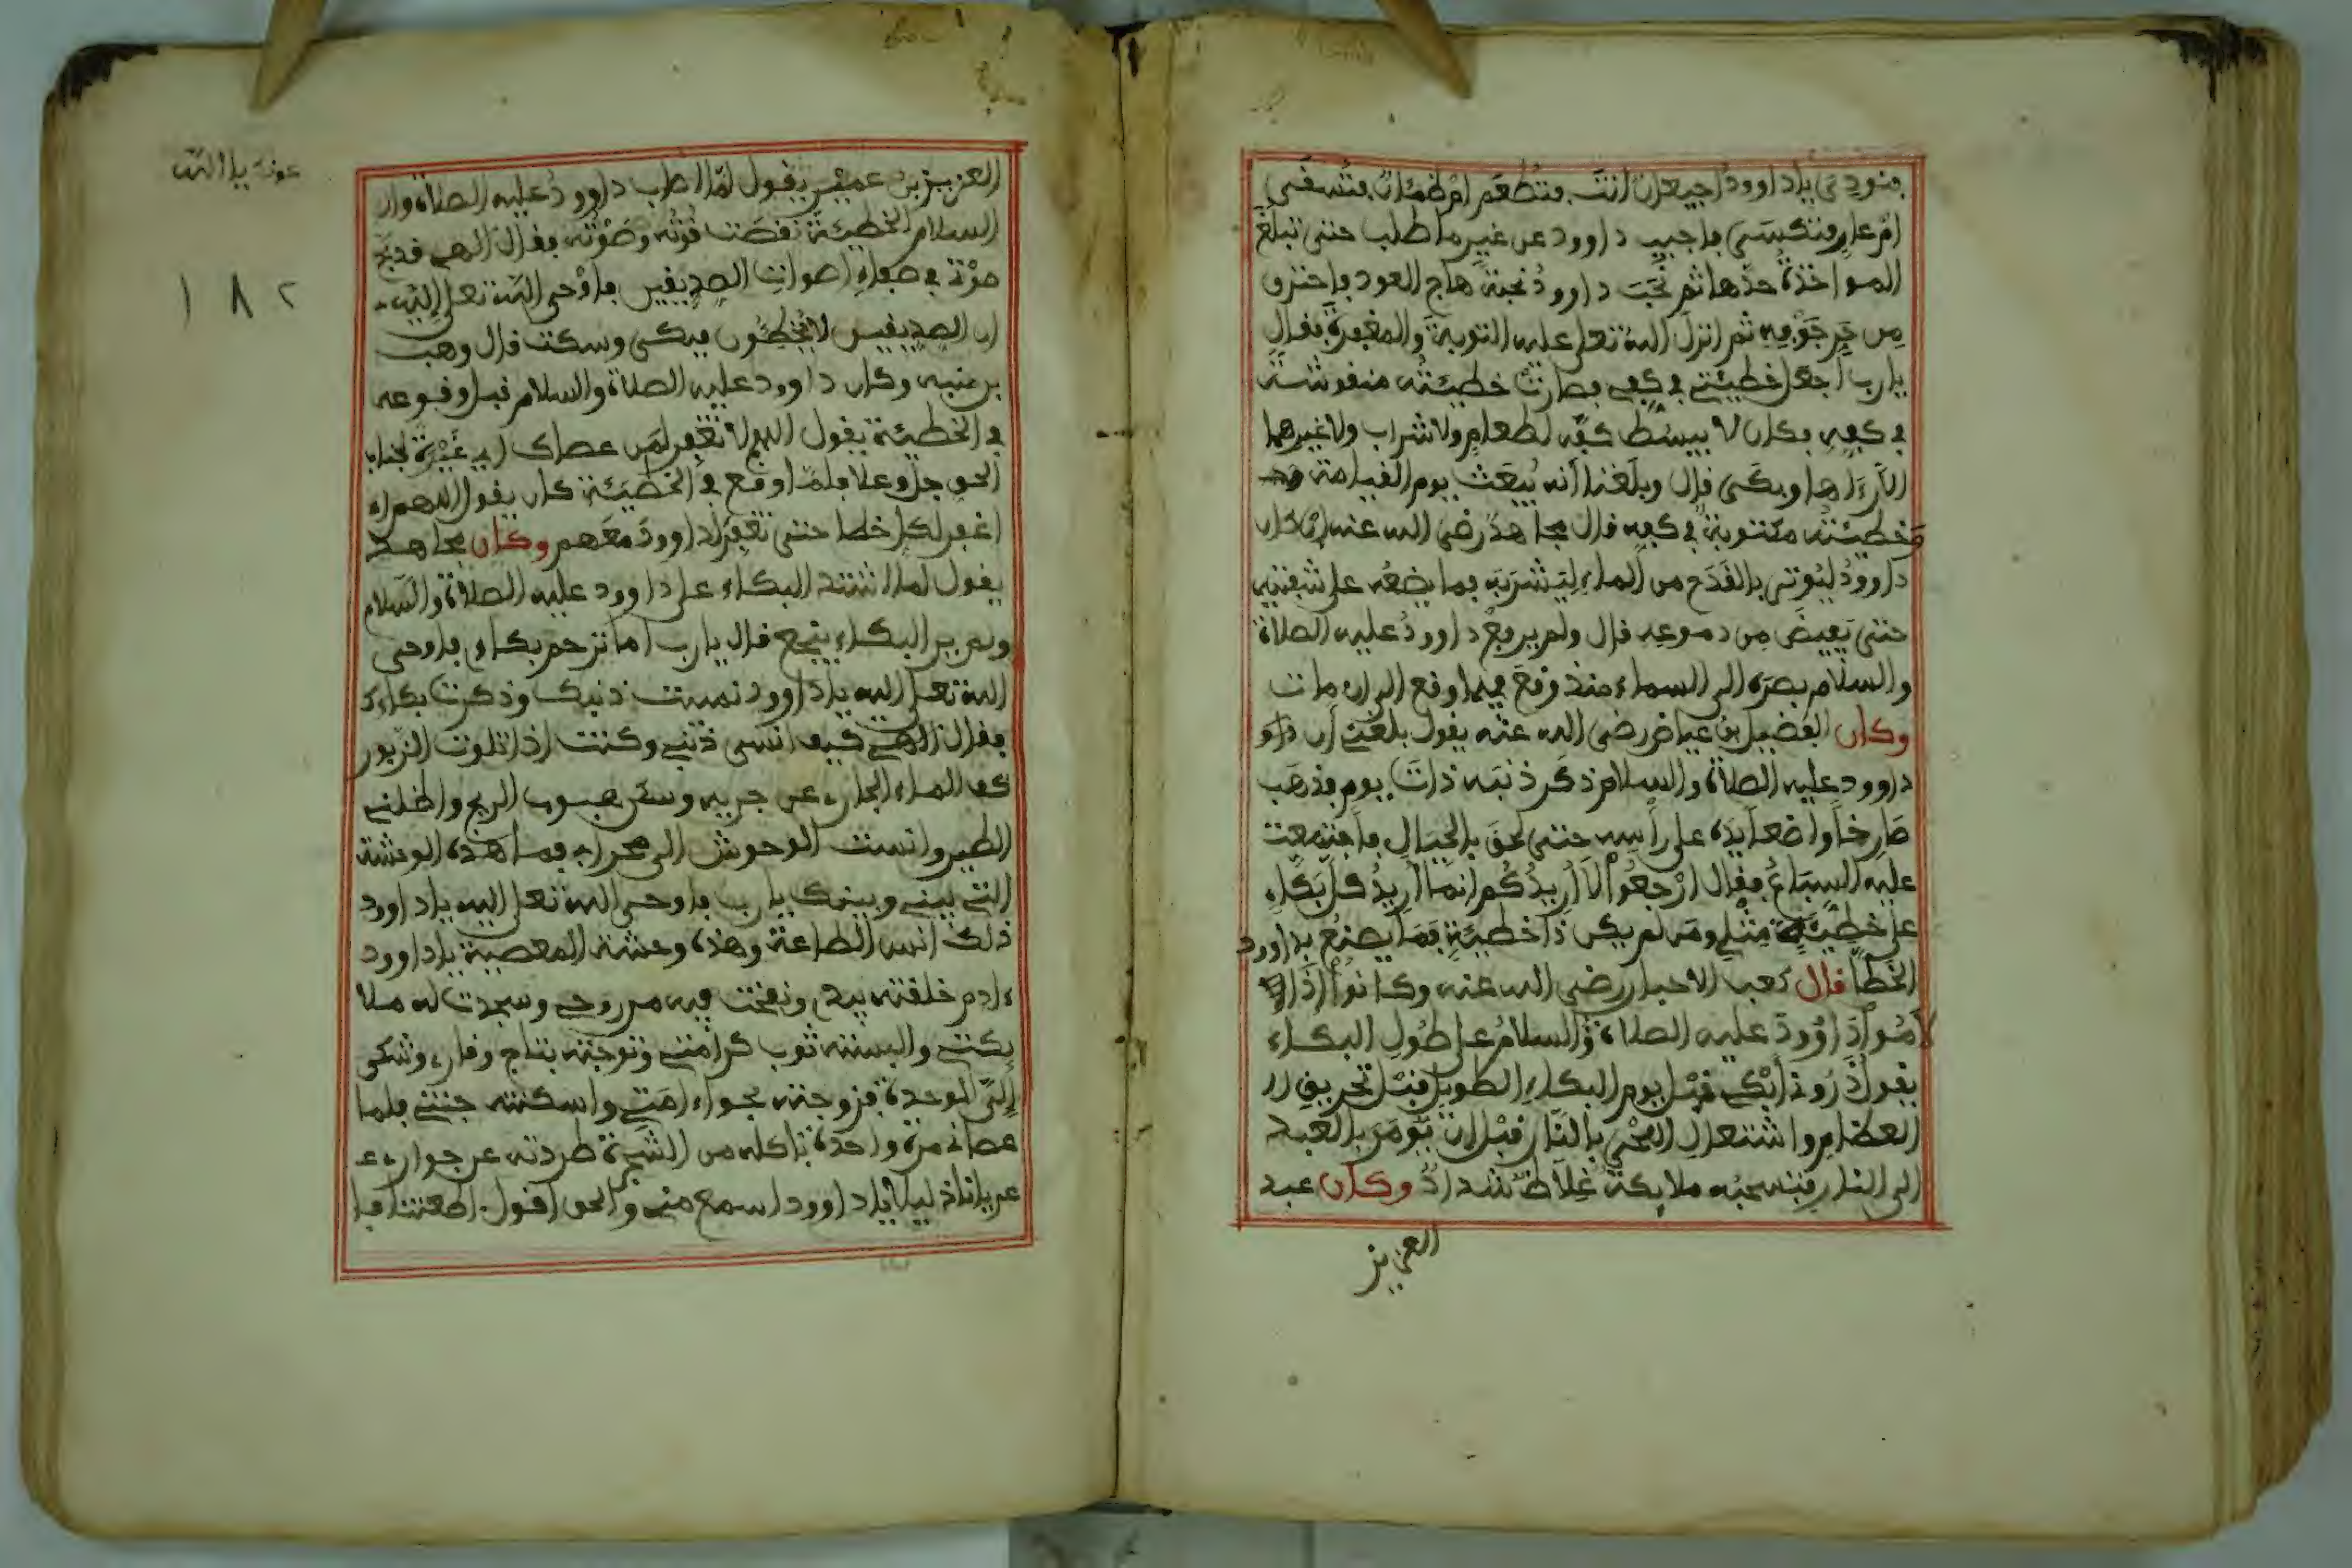 فنودي ياداوود اجيعان انت فتطعم ام ظمئان فتسقى
ام عار فتكسى فاجيب داوود عن غير ما طلب حتى تبلغ
المواخذة حدها ثم نحب داوود نحبة هاج العود فاحترق
من حر جوفه ثم انزل الله تعلى عليه التوبة والمغفرة فقال
يارب اجعل خطيئتي في كفي فصارت خطيئته منقوشة
في كفه فكان لا يبسط كفه لطعام ولا شراب ولا غيرهما
الا رءاها وبكى قال وبلغنا أنه يبعث يوم القيامة
وخطيئته مكتوبة في كفه قال مجاهد رضي الله عنه ان كان
داوود ليوتى بالقدح من الماء ليشربه فما يضعه على شفتيه
حتى يفيض من دموعه قال ولم يرفع داوود عليه الصلاة
والسلام بصره الى السماء منذ وقع فيما وقع الى ان مات
وكان الفضيل بن عياض رضي الله عنه يقول بلغني أن داو
داوود عليه الصلاة والسلام ذكر ذنبه ذات يوم فذهب
صارخا واضعا يده على رأسه حتى لحق بالجبال فاجتمعت
عليه السباع فقال ارجعوا لا أريدكم انما أريد كل بكاء
على خطيئة مثلي ومن لم يكن ذا خطيئة فما يصنع بداوود
الخطا قال كعب الاحبار رضي الله عنه وكانوا اذا
لاموا داوود عليه الصلاة والسلام على طول البكاء
يقول ذروني أبكي قبل يوم البكاء الطويل قبل تحريق
العظام واشتعال اللحى بالنار قبل ان يومر بالعبد
الى النار فتسحبه ملايكة غلاظ شداد وكان عبد
العزيز
عونك يا الله
١٨٢
العزيز بن عمير يقول لما اصاب داوود عليه الصلاة وال
السلام الخطيئة نقصت قوته وصوته فقال الهي قد بح
صوتي في صفاء اصوات الصديقين فاوحى الله تعلى اليه
ان الصديقين لا يخطئون فبكى وسكت قال وهب
بن منبه وكان داوود عليه الصلاة والسلام قبل وقوعه
في الخطيئة يقول اللهم لا تغفر لمن عصاك اي غيرة لجناب
الحق جل وعلا فلما وقع في الخطيئة كان يقول اللهم
اغفر لكل خطا حتى تغفر لداوود معهم وكان مجاهد
يقول لما اشتد البكاء على داوود عليه الصلاة والسلام
ولم ير البكاء ينجع قال يارب اما ترحم بكاءي فاوحى
الله تعلى اليه ياداوود نسيت ذنبك وذكرت بكاءك
فقال الهي كيف انسى ذنبي وكنت اذا تلوت الزبور
كف الماء الجاري عن جريه وسكن هبوب الريح واظلني
الطير وانست الوحوش الى محرابي فما هذه الوحشة
التي بيني وبينك يارب فاوحى الله تعلى اليه ياداوود
ذلك انس الطاعة وهذه وحشة المعصية ياداوود
ءادم خلقته بيدي ونفخت فيه من روحي وسجدت له ملا
يكتي والبسته ثوب كرامتي وتوجته بتاج وقاري وشكى
إلي الوحدة فزوجته بحواء امتي واسكنته جنتي فلما
عصاني مرة واحدة باكله من الشجرة طردته عن جواري ع
عريانا ذليلا ياداوود اسمع مني والحق اقول اطعتنا فا